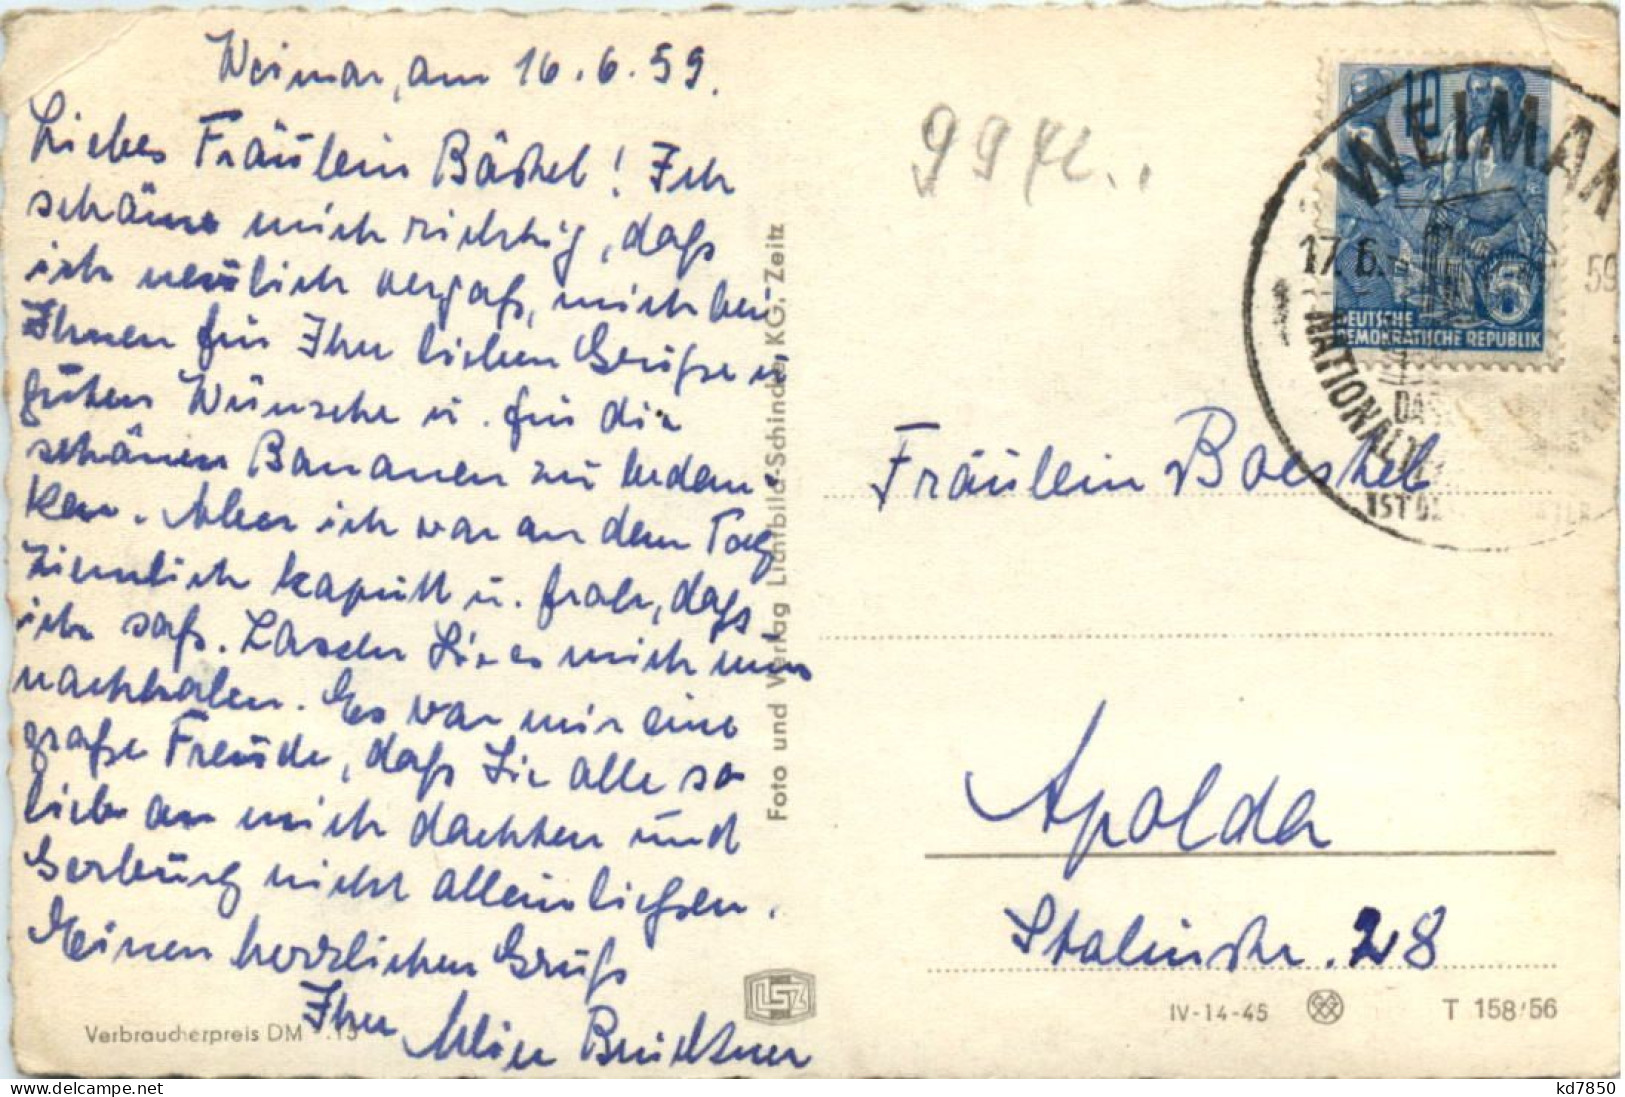 Weimar, am 16.6.59.
Liebes Fräulein Böshel! Ich
schäme mich richtig, daß
ich neulich vergaß, mich bei
Ihnen für Ihre lieben Grüße u.
guten Wünsche u. für die
schönen Bananen zu bedan-
ken. Aber ich war an dem Tag
ziemlich kaputt u. froh, daß
ich saß. Lassen Sie es mich nun
nachholen. Es war mir eine
große Freude, daß Sie alle so
lieb an mich dachten und
nicht allein ließen.
Meinen herzlichen Gruß
Ihre
Verbraucherpreis DM
Foto und Verlag Lichtbild-Schincke, KG, Zeitz
LSZ
10
5
DEUTSCHE
DEMOKRATISCHE REPUBLIK
WEIMAR
17.6. 59
NATIONALTHE
DAS
IST DE
Fräulein Boeshel
Apolda
Stalinstr. 28
IV-14-45 T 158/56
kd7850
www.delcampe.net